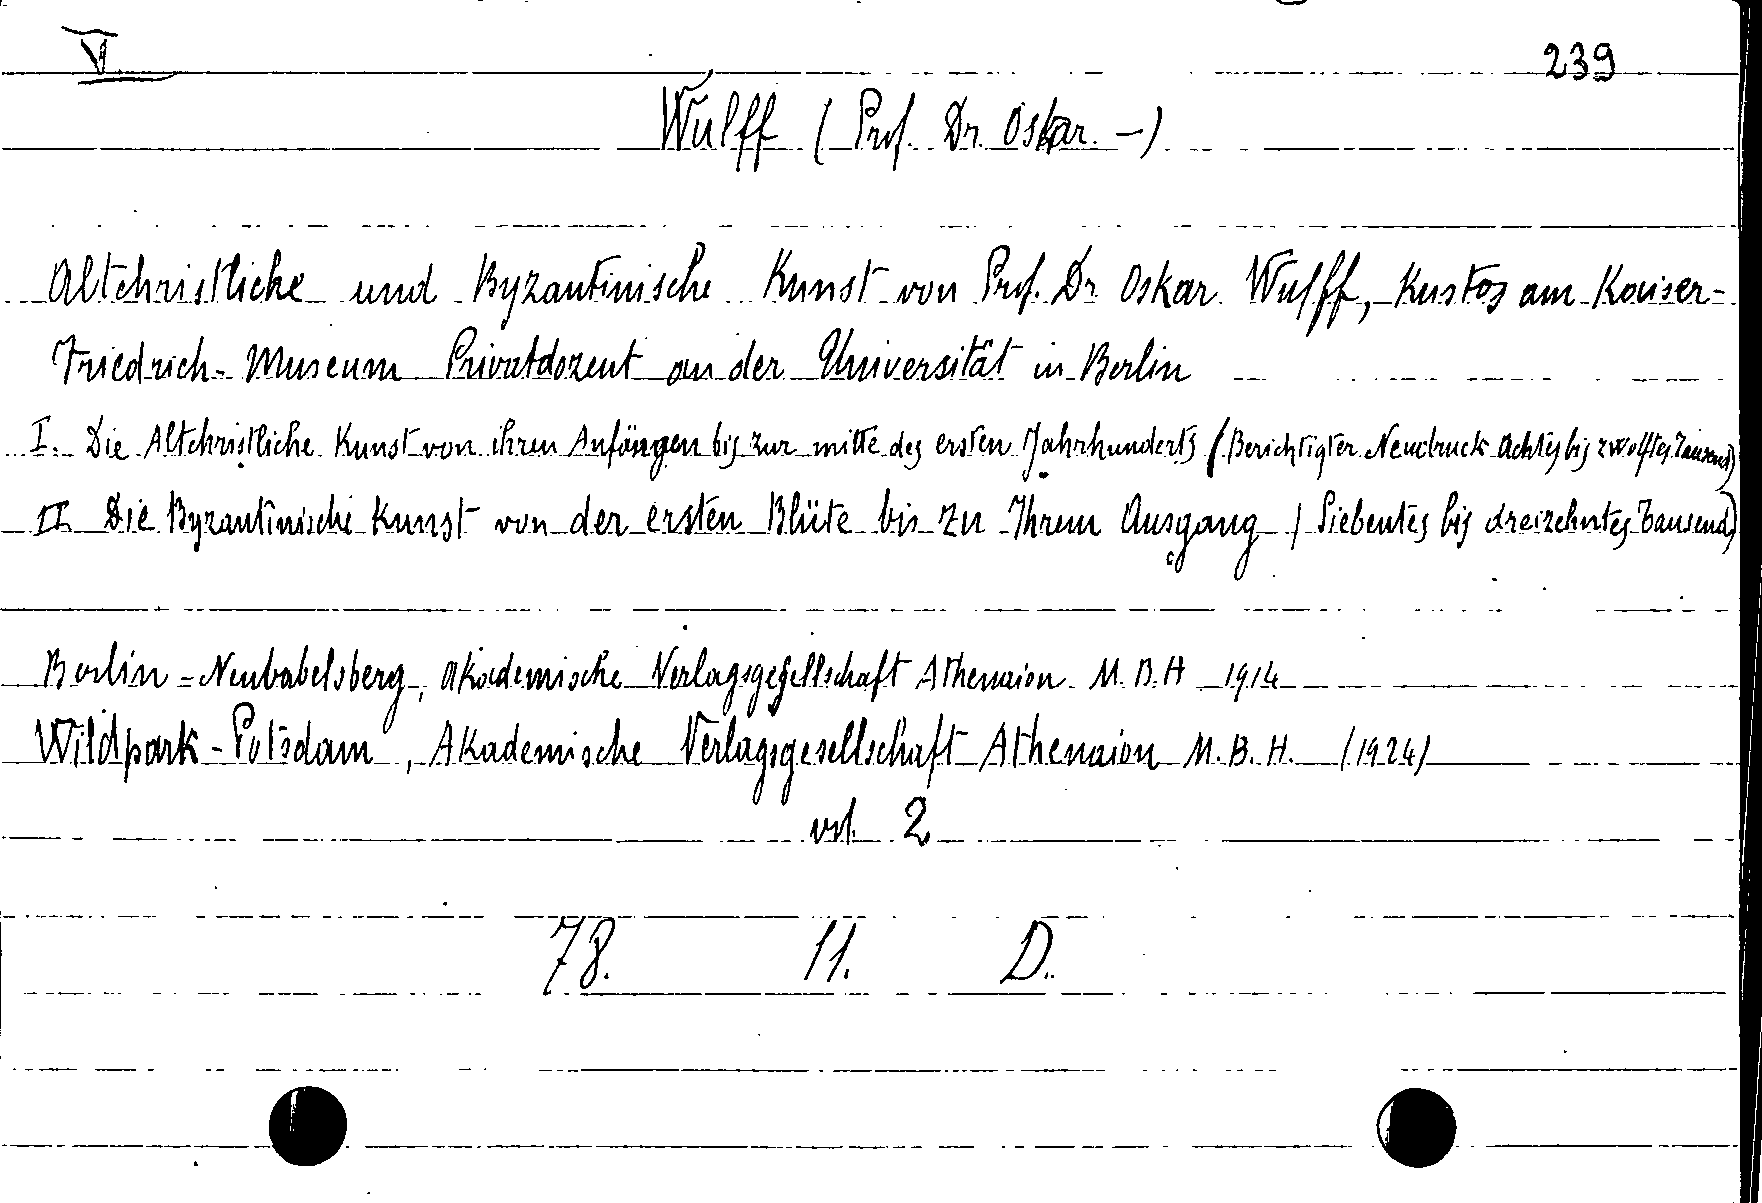 VI 239
Wulff (Prof. Dr. Oskar -)
Altchristliche und Byzantinische Kunst von Prof. Dr Oskar Wulff, Kustos am Kaiser-
Friedrich-Museum Privatdozent an der Universität in Berlin
I. Die Altchristliche Kunst von ihren Anfängen bis zur mitte des ersten Jahrhunderts (Berichtigter Neudruck Achtes bis zwolftes Tausend)
II. Die Byzantinische Kunst von der ersten Blüte bis zu Ihrem Ausgang (Siebentes bis dreizehntes Tausend)
Berlin-Neubabelsberg, Akademische Verlagsgesellschaft Athenaion M.B.H 1914
Wildpark-Potsdam, Akademische Verlagsgesellschaft Athenaion M.B.H. (1924)
vol. 2
78. 11. D.